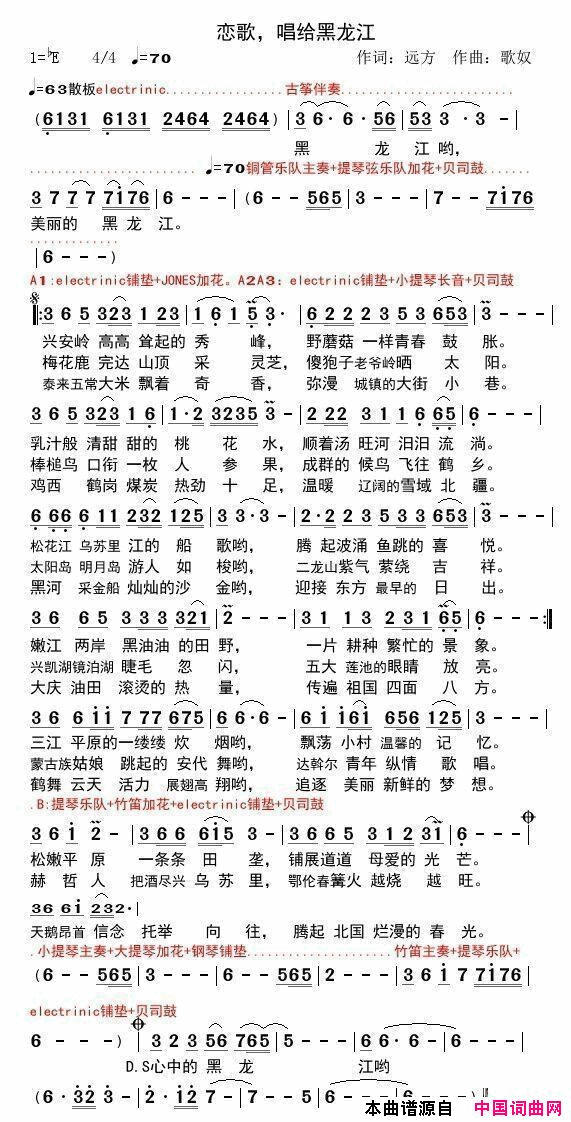 恋歌，唱给黑龙江
1=♭E 4/4 ♩=70 作词：远方 作曲：歌奴
♩=63散板electrinic 古筝伴奏
(6131 6131 2464 2464) | 3 6· 6· 56 | 53 3· 3 - |
黑 龙 江 哟,
♩=70铜管乐队主奏+提琴弦乐队加花+贝司鼓
3 7 7 7 7176 | 6 - - - | (6 - - 565 | 3 - - - | 7 - - 7176
美丽的 黑 龙 江。
| 6 - - - )
A1:electrinic铺垫+JONES加花。A2A3：electrinic铺垫+小提琴长音+贝司鼓
‖:3 6 5 323 1 23 | 1 6 1 5 3· | 6 2 2 2 3 5 3 653 | 3 - - - |
兴安岭 高高 耸起的 秀 峰， 野蘑菇 一样青春 鼓 胀。
梅花鹿 完达 山顶 采 灵芝，傻狍子老爷岭晒 太 阳。
泰来五常大米 飘着 奇 香， 弥漫 城镇的大街 小 巷。
3 6 5 323 1 6 | 1·2 3235 3 - | 6 2 2 2 3 1 6 65 | 6 - - - |
乳汁般 清甜 甜的 桃 花 水，顺着汤 旺河 汩汩 流 淌。
棒槌鸟 口衔 一枚 人 参 果，成群的 候鸟 飞往 鹤 乡。
鸡西 鹤岗 煤炭 热劲 十 足， 温暖 辽阔的雪域 北 疆。
6 66 6 11 232 125 | 3 3·3 - | 2·2 2 3 5 3 653 | 3 - - - |
松花江 乌苏里 江的 船 歌哟， 腾 起波涌 鱼跳的 喜 悦。
太阳岛 明月岛 游人 如 梭哟，二龙山紫气 萦绕 吉 祥。
黑河 采金船 灿灿的沙 金哟， 迎接 东方 最早的 日 出。
3 6 6 5 3 3 3 321 | 2 - - - | 3 1 1 3 2 31 65 | 6 - - - :‖
嫩江 两岸 黑油油 的田 野， 一片 耕种 繁忙的 景 象。
兴凯湖镜泊湖 睫毛 忽 闪， 五大 莲池的眼睛 放 亮。
大庆 油田 滚烫的 热 量， 传遍 祖国 四面 八 方。
3 6 6 11 7 77 675 | 6 6·6 - | 6 1 161 656 125 | 3 - - - |
三江 平原的一缕缕 炊 烟哟， 飘荡 小村 温馨的 记 忆。
蒙古族姑娘 跳起的 安代 舞哟， 达斡尔 青年 纵情 歌 唱。
鹤舞 云天 活力 展翅高 翔哟， 追逐 美丽 新鲜的 梦 想。
.B:提琴乐队+竹笛加花+electrinic铺垫+贝司鼓
3 6 1 2 - | 3 6 6 615 3 | 3 6 1 2 2 3 31 | 6 - - - |
松嫩平 原 一条条 田 垄，铺展道道 母爱的 光 芒。
赫 哲 人 把酒尽兴 乌 苏 里，鄂伦春篝火 越烧 越 旺。
36 61 232· |
天鹅昂首 信念 托举 向 往， 腾起 北国 烂漫的 春 光。
.小提琴主奏+大提琴加花+钢琴铺垫 竹笛主奏+提琴乐队+
(6 - - 565 | 3 - - - | 6 - - 565 | 2 - - - | 3 6 1 7 7176
electrinic铺垫+贝司鼓
6 - - - ) | 3 2 3 56 765 | 5 - - - | 6 6· 6 - | 6 - - - |
D.S心中的 黑 龙 江哟
(6· 32 3 - | 2·12 7 - | 7 - 5 - | 6 - - - | 6 - - - )‖
本曲谱源自 中国词曲网